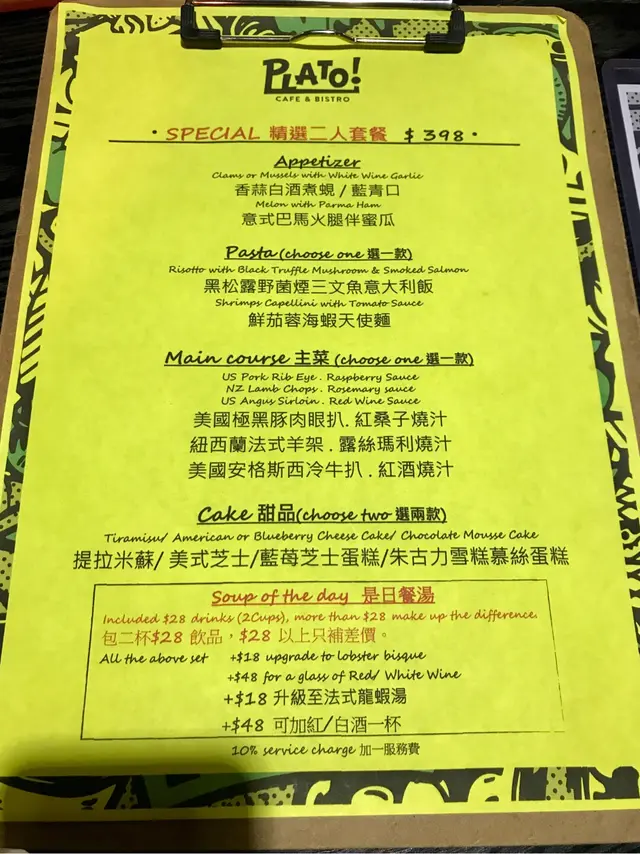 PLATO!
CAFE & BISTRO
• SPECIAL 精選二人套餐 $398 •
Appetizer
Clams or Mussels with White Wine Garlic
香蒜白酒煮蜆 / 藍青口
Melon with Parma Ham
意式巴馬火腿伴蜜瓜
Pasta (choose one 選一款)
Risotto with Black Truffle Mushroom & Smoked Salmon
黑松露野菌煙三文魚意大利飯
Shrimps Capellini with Tomato Sauce
鮮茄蓉海蝦天使麵
Main course 主菜 (choose one 選一款)
US Pork Rib Eye . Raspberry Sauce
NZ Lamb Chops . Rosemary sauce
US Angus Sirloin . Red Wine Sauce
美國極黑豚肉眼扒. 紅桑子燒汁
紐西蘭法式羊架 . 露絲瑪利燒汁
美國安格斯西冷牛扒 . 紅酒燒汁
Cake 甜品(choose two 選兩款)
Tiramisu/ American or Blueberry Cheese Cake/ Chocolate Mousse Cake
提拉米蘇/ 美式芝士/藍莓芝士蛋糕/朱古力雪糕慕絲蛋糕
Soup of the day 是日餐湯
Included $28 drinks (2Cups), more than $28 make up the difference.
包二杯$28 飲品，$28 以上只補差價。
All the above set +$18 upgrade to lobster bisque
+$48 for a glass of Red/ White Wine
+$18 升級至法式龍蝦湯
+$48 可加紅/白酒一杯
10% service charge 加一服務費